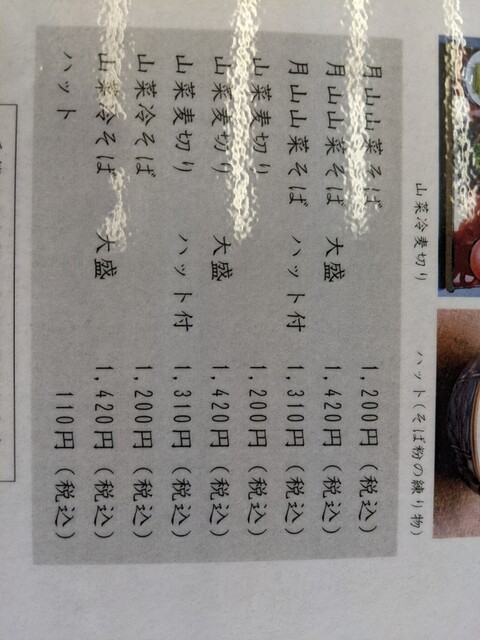 山菜冷麦切り
ハット(そば粉の練り物)
月山山菜そば 1,200円(税込)
月山山菜そば 大盛 1,420円(税込)
月山山菜そば ハット付 1,310円(税込)
山菜麦切り 1,200円(税込)
山菜麦切り 大盛 1,420円(税込)
山菜麦切り ハット付 1,310円(税込)
山菜冷そば 1,200円(税込)
山菜冷そば 大盛 1,420円(税込)
ハット 110円(税込)